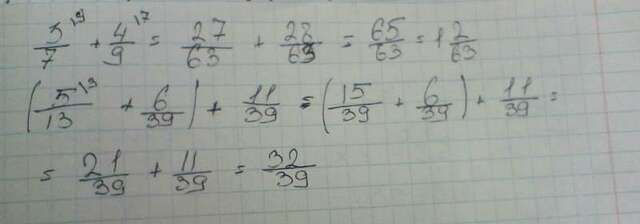 3/7 \9 + 4/9 \7 = 27/63 + 28/63 = 65/63 = 1 2/63
(5/13 \3 + 6/39) + 11/39 = (15/39 + 6/39) + 11/39 =
= 21/39 + 11/39 = 32/39